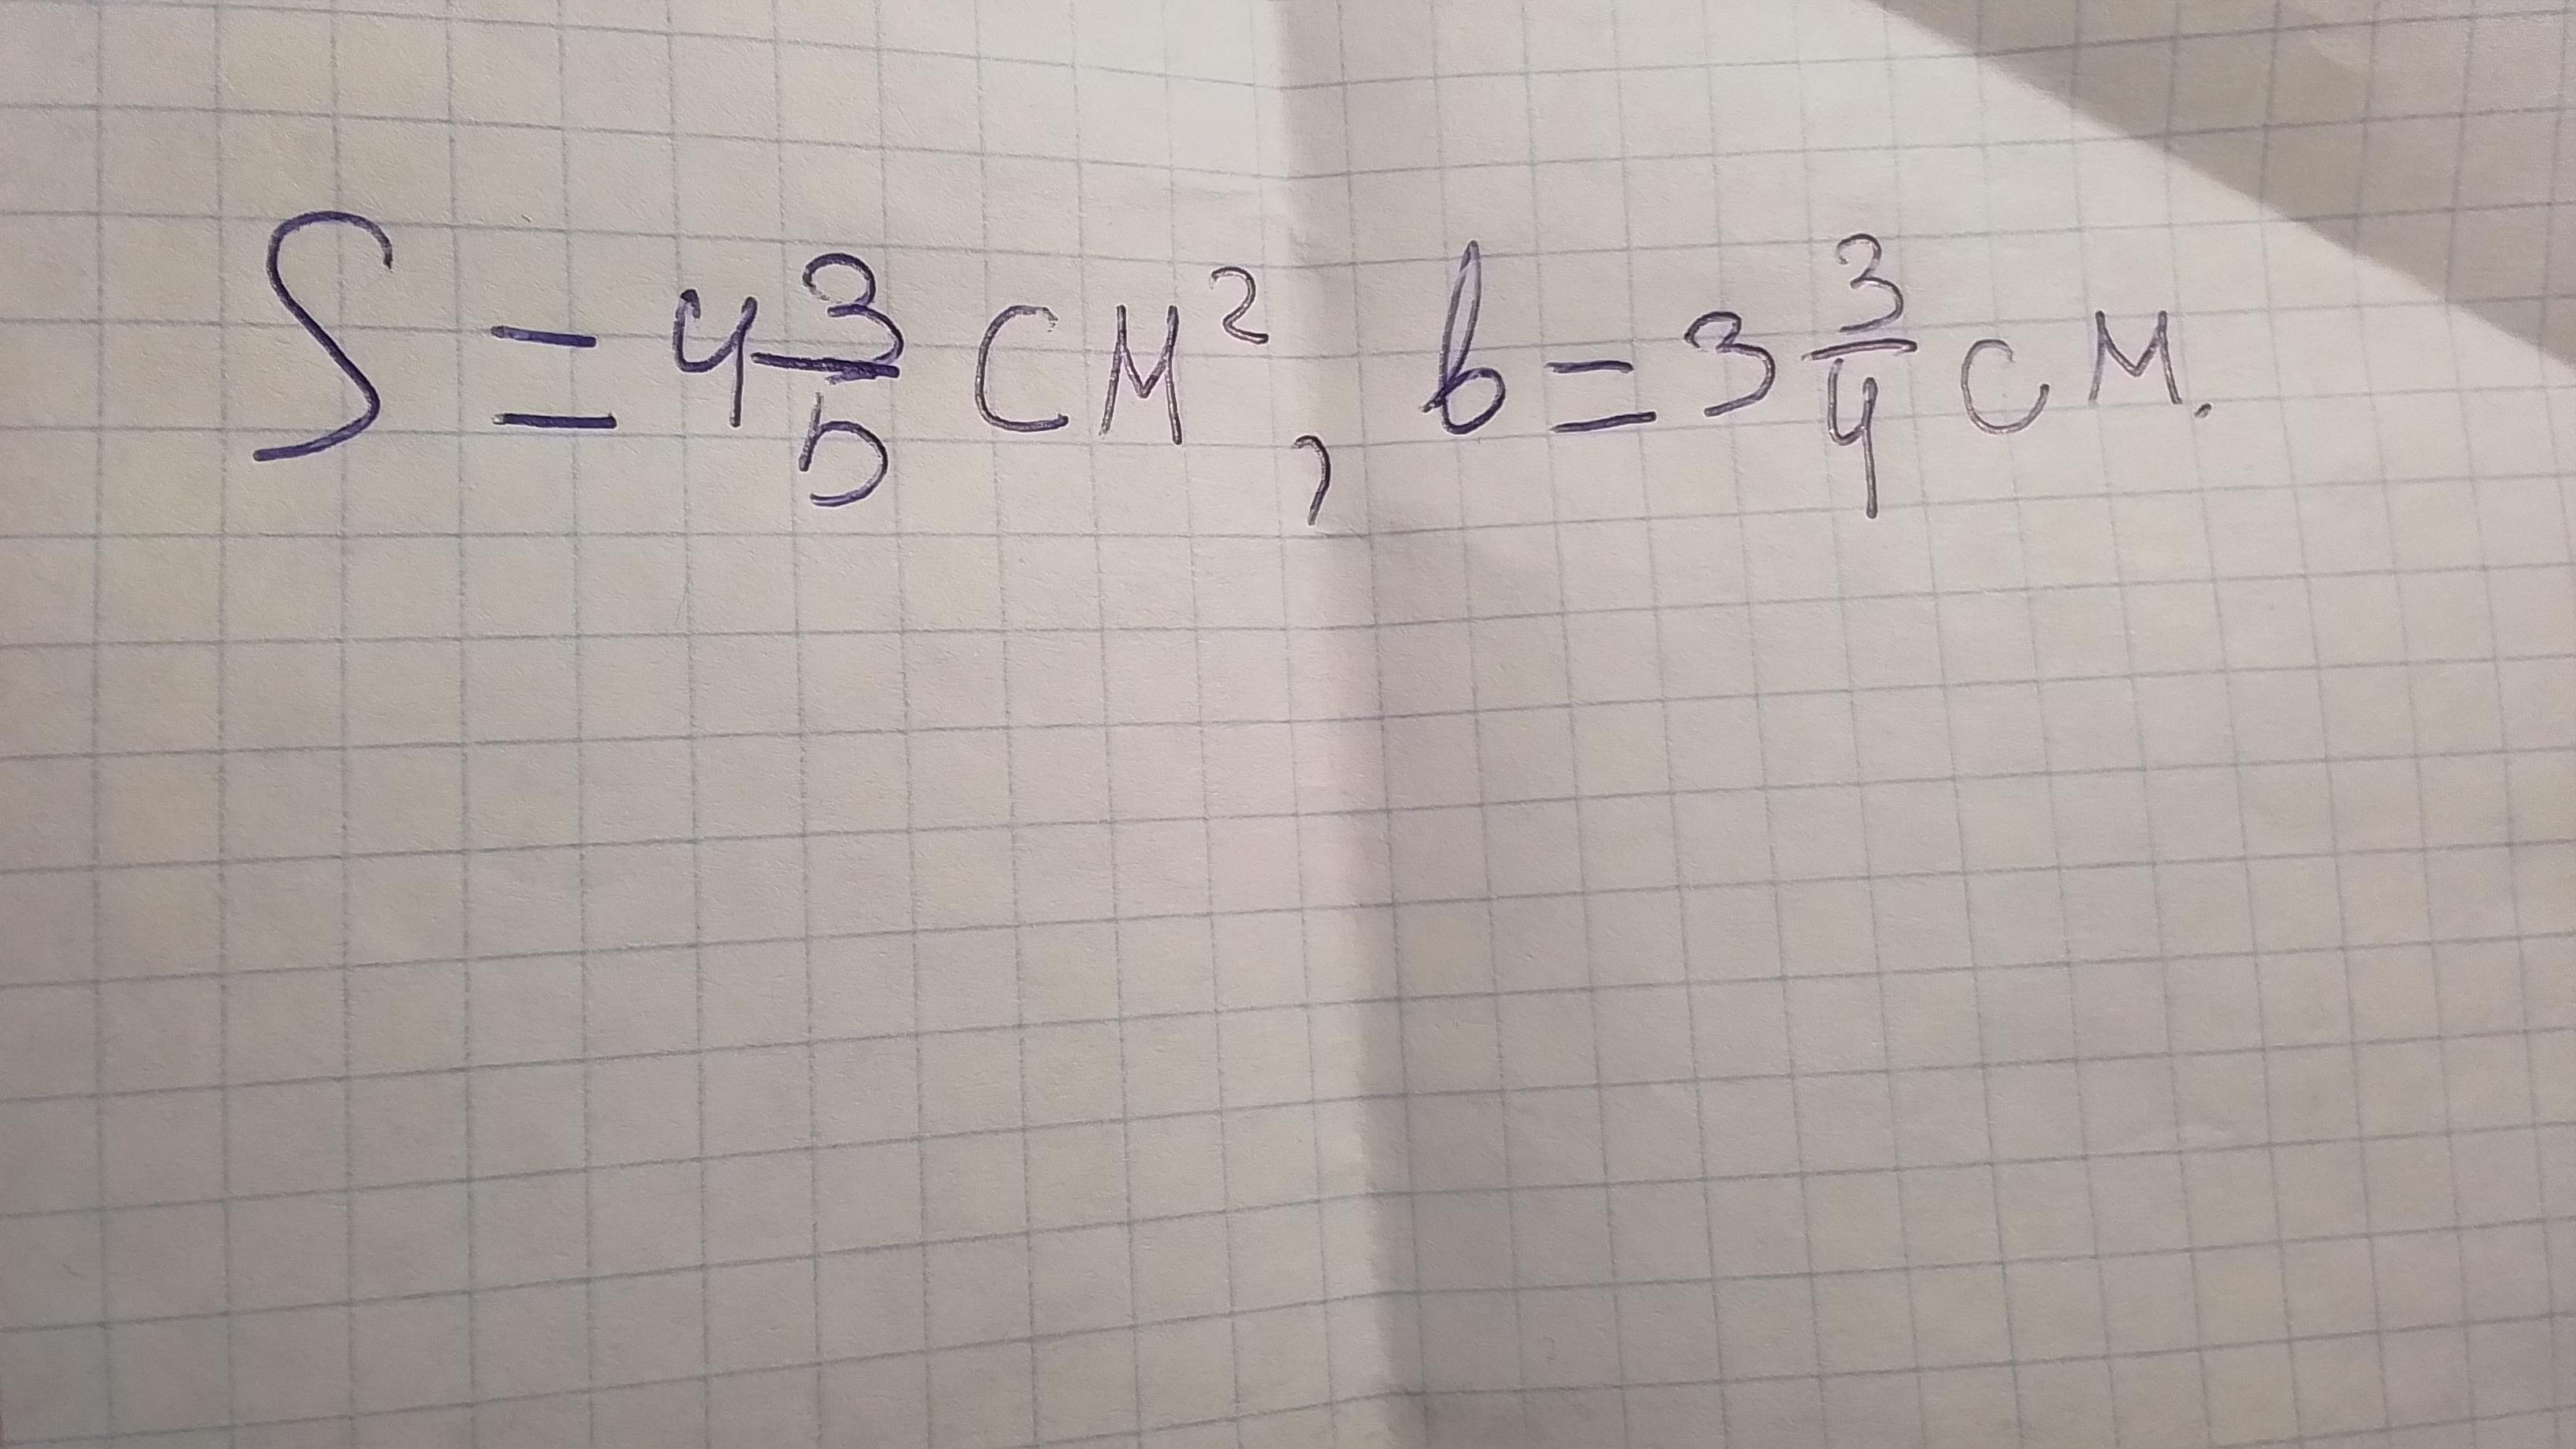 S = 4 3/5 см², b = 3 3/4 см.